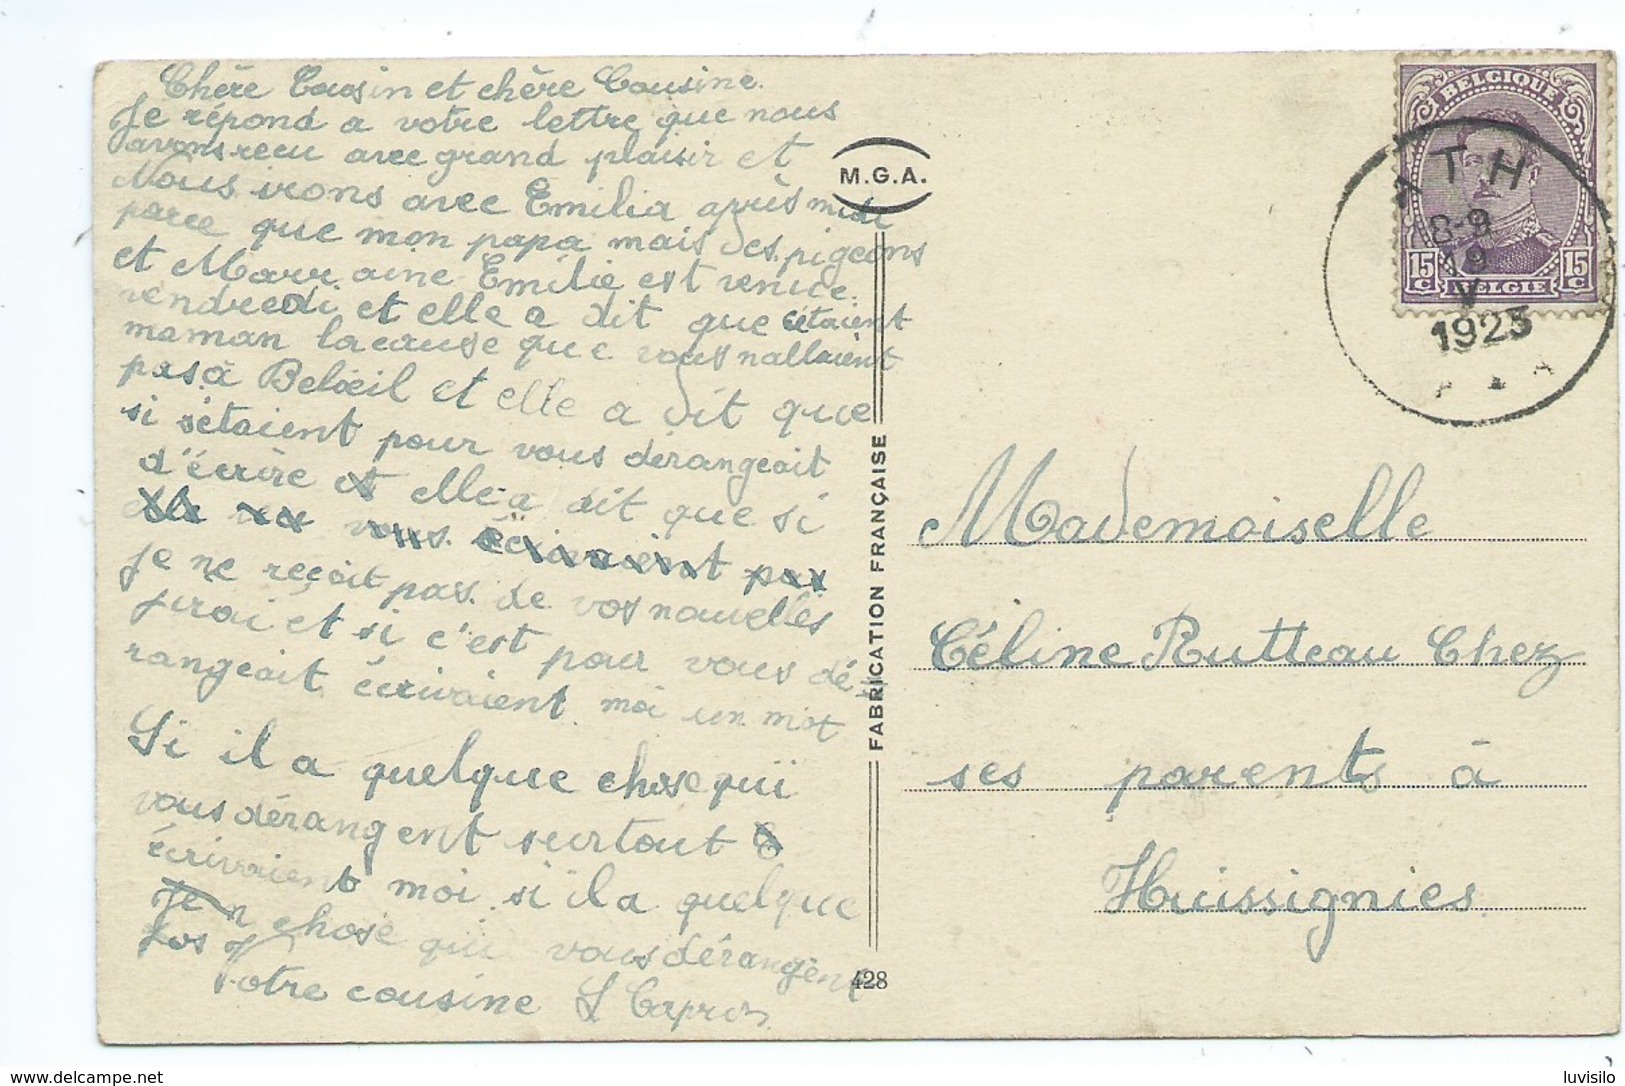 Chère Cousin et chère Cousine.
Je répond a votre lettre que nous
avons recu avec grand plaisir et
Nous irons avec Emilia après midi
parce que mon papa mais des pigeons
et Marraine Emilie est venue
vendredi et elle a dit que sétaient
maman la cause que vous nallaient
pas à Belœil et elle a dit que
si sétaient pour vous dérangeait
d'écrire et elle a dit que si
vous écrivaient pas
je ne reçoit pas de vos nouvelles
jirai et si c'est pour vous dé-
rangeait écrivaient moi un mot
Si il a quelque chose qui
vous dérangent surtout
écrivaient moi si il a quelque
Je n chose qui vous dérangent
Votre cousine L Capron
M.G.A.
FABRICATION FRANÇAISE
428
BELGIQUE
15 c 15 c
BELGIE
ATH
8-9
19
V
1923
Mademoiselle
Céline Rutteau Chez
ses parents à
Huissignies
www.delcampe.net
luvisilo